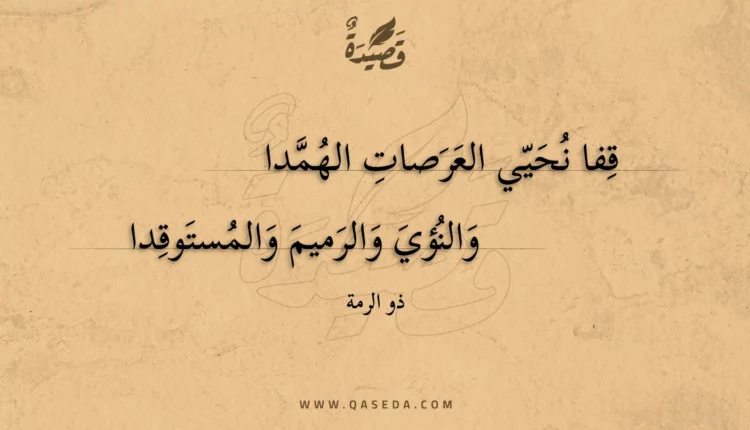 قَصِيْدَةٌ
قِفا نُحَيّي العَرَصاتِ الهُمَّدا
وَالنُؤيَ وَالرَميمَ وَالمُستَوقِدا
ذو الرمة
WWW.QASEDA.COM